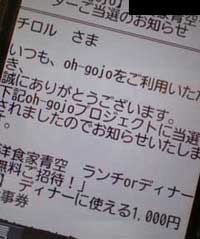 ターご当選のお知らせ
チロル さま
いつも、oh-gojoをご利用いただ
き、
誠にありがとうございます。
下記oh-gojoプロジェクトに当選
されましたのでお知らせいたしま
す。
洋食家青空 ランチorディナー
無料ご招待!」
ディナーに使える1,000円
事券